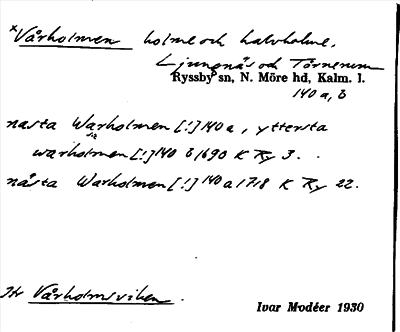 *Vårholmen holme och halvholme,
Ljungnäs och Törnerum
Ryssby sn, N. Möre hd, Kalm. l.
140 a, b
nasta Warholmen [!] 140 a, yttersta
warholmen [!] 140 b 1690 K Ry 3.
nästa Warholmen [!] 140 a 1718 K Ry 22.
Jfr Vårholmsviken.
Ivar Modéer 1930